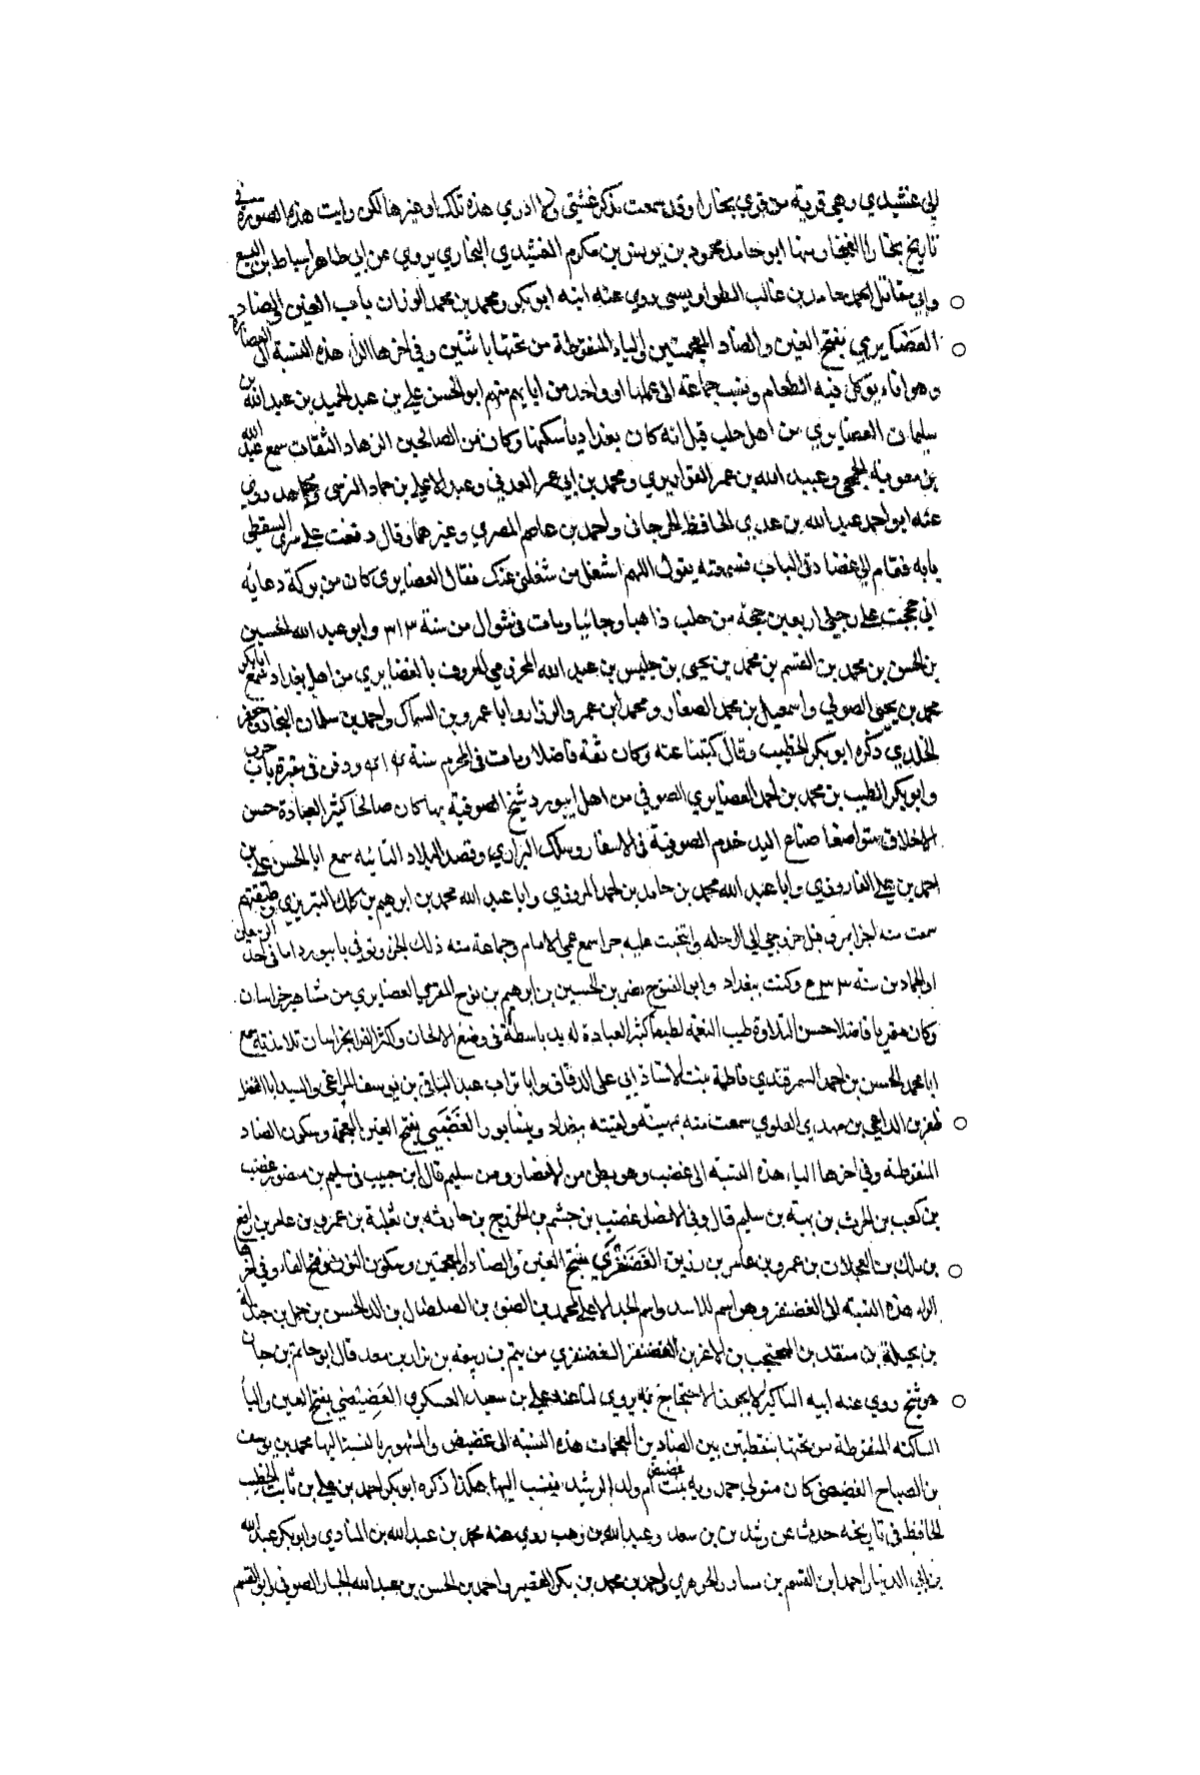 الى غشيدي وهي قرية من قري بخارا وقد سمعت مذكر غشتي ولا ادري هذه تلك او غيرها لكن رايت هذه الصورة في
تاريخ بخارا لغنجار منها ابو حامد محمود بن يونس بن مكرم الغشيدي البخاري يروي عن ابي طاهر اسباط بن اليسع
وابي مقاتل احمد بن غالب الطواويسي روي عنه ابنه ابو بكر ومحمد بن محمد الوزان باب الغين والضاد
الغضايري بفتح الغين والضاد المعجمتين والياء المنقوطة من تحتها باثنتين وفي اخرها الراء هذه النسبة الى الغضارة
وهو اناء يوكل فيه الطعام ونسب جماعة الى عملها او واحد من ابايهم منهم ابو الحسن علي بن عبد الحميد بن عبد الله بن
سليمان الغضايري من اهل حلب قيل انه كان بغداديا سكنها وكان من الصالحين الزهاد الثقات سمع عبد الله
بن معوية الجمحي وعبيد الله بن عمر القواريري ومحمد بن ابي عمر العدني وعبد الاعلي بن حماد النرسي روي
عنه ابو احمد عبد الله بن عدي الحافظ الجرجاني واحمد بن عاصم المصري وغيرهما وقال دققت على سري السقطي
بابه فقام الي عضادتي الباب فسمعته يقول اللهم اشغل من شغلني عنك فقال الغضايري كان من بركة دعايه
اني حججت على رجلي اربعين حجة من حلب ذاهبا وجائيا ومات في شوال من سنة ٣١٣ وابو عبد الله الحسين
بن الحسن بن محمد بن القسم بن محمد بن يحيى بن حليس بن عبد الله المخزومي المعروف بالغضايري من اهل بغداد سمع ابا بكر
محمد بن يحيى الصولي واسمعيل بن محمد الصفار ومحمد بن عمرو الرزاز وابا عمرو بن السماك واحمد بن سلمان النجاد وجعفر
الخلدي ذكره ابو بكر الخطيب وقال كتبنا عنه وكان ثقة فاضلا ومات في المحرم سنة ٤١٤ ودفن في مقبرة باب حرب
وابو بكر الطيب بن محمد بن احمد الغضايري الصوفي من اهل ابيورد شيخ الصوفية بها كان صالحا كثير العبادة حسن
الاخلاق متواضعا خدم الصوفية في الاسفار وسلك البراري وقصد البلاد النائيه سمع ابا الحسن علي بن
احمد بن علي الفاروزي وابا عبد الله محمد بن حامد بن احمد المروزي وابا عبد الله محمد بن ابرهيم التبريزي وطبقتهم
سمعت منه اجزا بمرو قبل خروجي الى الرحله وانتخبت عليه جزا سمع عمي الامام وجماعة منه ذلك الجزء وتوفي بابيورد اما في احد الربيعين
او الجمادين سنة وكنت ببغداد وابو الفتوح نصر بن الحسين بن ابرهيم بن نوح المقري الغضايري من مشاهير خراسان
وكان مقريا فاضلا حسن التلاوة طيب النغمة لطيفا كثير العبادة له يد باسطة في وضع الالحان واكثر القرا بخراسان تلامذته سمع
ابا محمد الحسن بن احمد السمرقندي فاطمة بنت الاستاذ ابي علي الدقاق وابا تراب عبد الباقي بن يوسف المراغي والسيد ابا الفضل
ظفر بن الداعي بن مهدي العلوي سمعت منه بميهنة ولقيته ببغداد ونيسابور الغضبي بفتح الغين المعجمة وسكون الضاد
المنقوطة وفي اخرها الباء هذه النسبة الى غضب وهو بطن من الانصار ومن سليم قال ابن حبيب في سليم بن منصور غضب
بن كعب بن الحرث بن بهثة بن سليم قال وفي الانصار غضب بن جشم بن الخزرج بن حارثه بن ثعلبة بن عمرو بن عامر رافع
بن مالك بن العجلان بن عمرو بن عامر بن زريق الغضنفري بفتح الغين والضاد المعجمتين وسكون النون وفتح الفاء وفي اخرها
الراء هذه النسبة الى الغضنفر وهو اسم للاسد واسم لجد الاعلى محمد بن الضو بن الصلصال بن الدلهمس بن حمل بن جندلة
بن بجيلة بن منقذ بن المحتجب بن الاغر بن الغضنفر الغضنفري من تيم بن ربيعة بن نزار بن معد قال ابو حاتم بن حبان
هو شيخ روي عنه ابيه المناكير لا يجوز الاحتجاج به يروي لنا عنه علي بن سعيد العسكري الغضيضي بفتح الغين والياء
الساكنة المنقوطة من تحتها بنقطتين بين الضادين المعجمات هذه النسبة الى غضيض والمشهور بالنسبة اليها محمد بن يوسف
بن الصباح الغضيضي كان متولي حمدوية بنت غضيض ام ولد الرشيد فينسب اليها هكذا ذكره ابو بكر احمد بن علي بن ثابت الخطيب
الحافظ في تاريخه حدث عن رشدين بن سعد وعبد الله بن وهب روي عنه محمد بن عبد الله بن المنادي وابو بكر عبد الله
بن ابي الدنيا واحمد بن القسم بن مساور الجوهري واحمد بن محمد بن بكر القصير واحمد بن الحسن بن عبد الجبار الصوفي وابو القسم